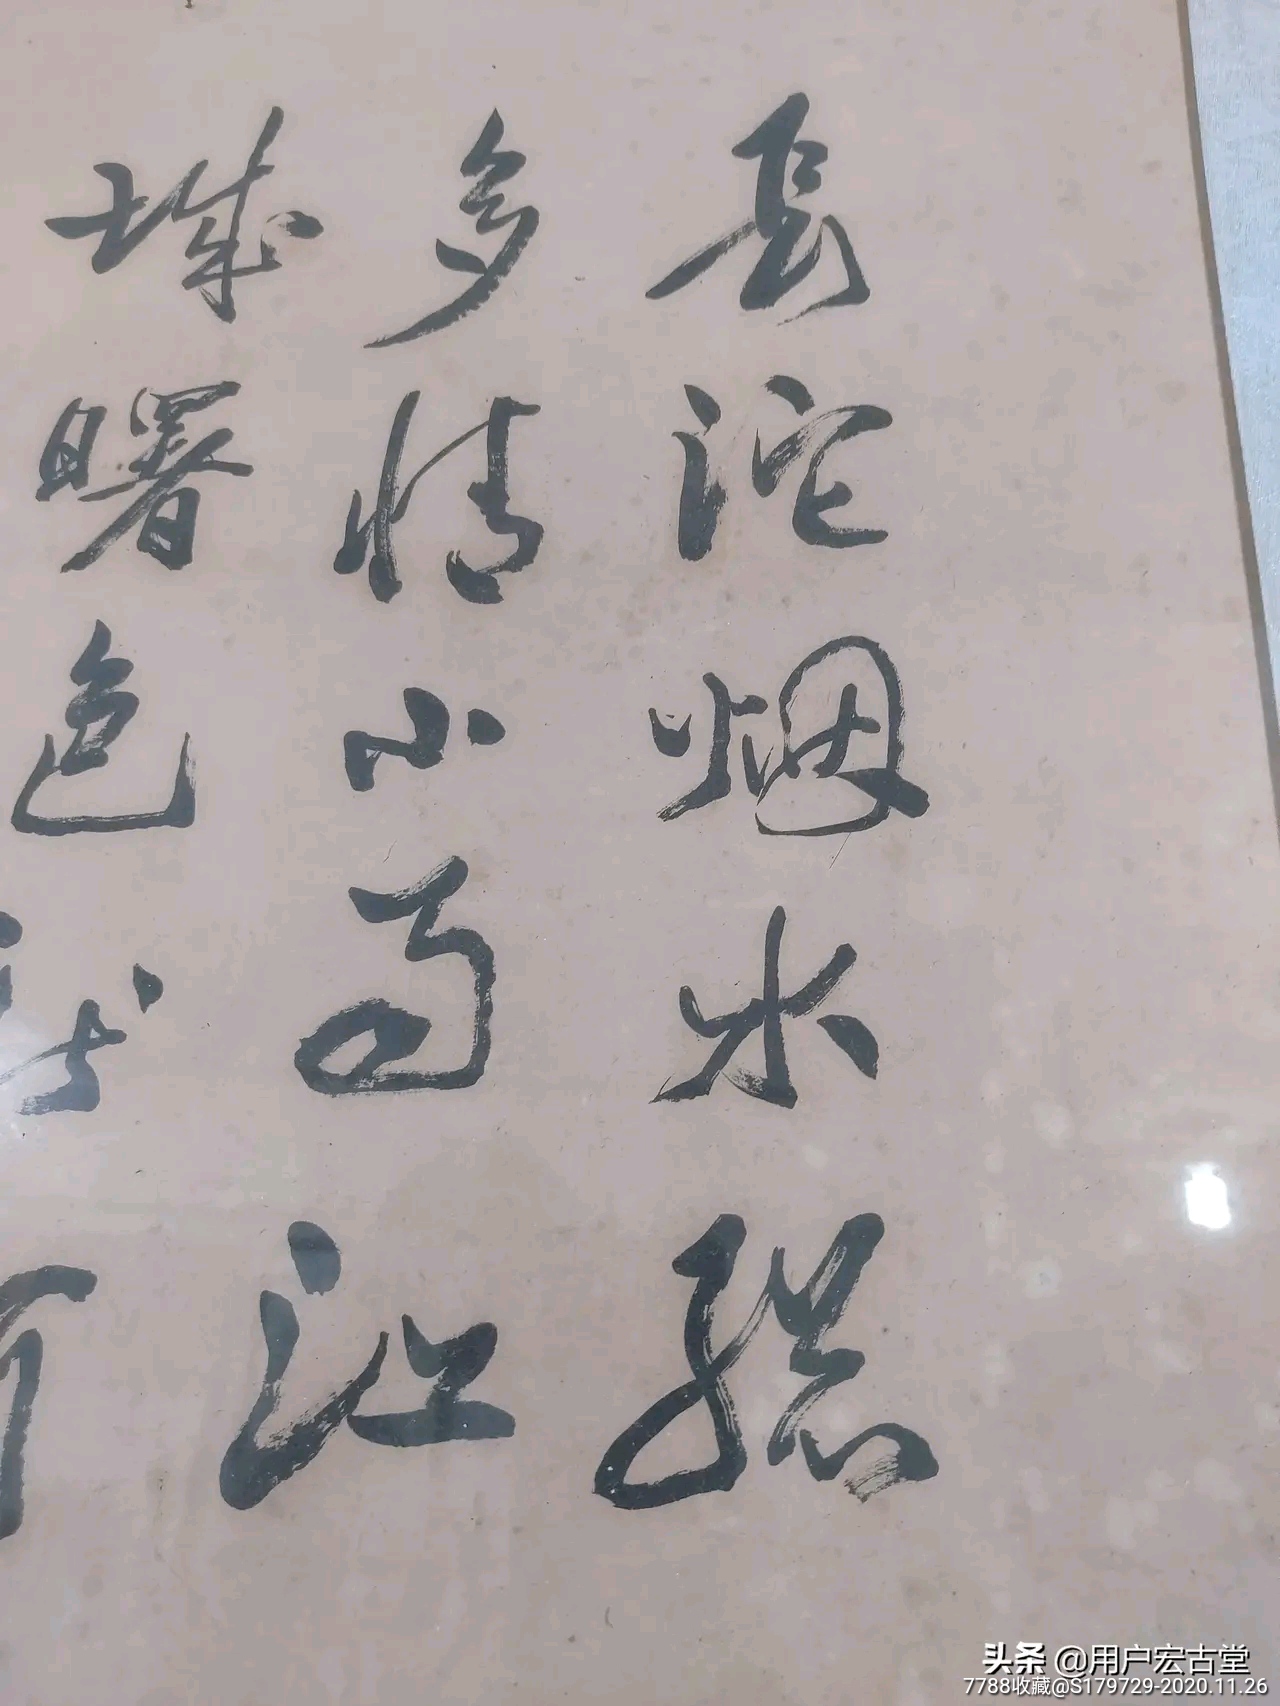 長沱烟水總
多情小雨江
城曙色
头条 @用户宏古堂
7788收藏@S179729-2020.11.26